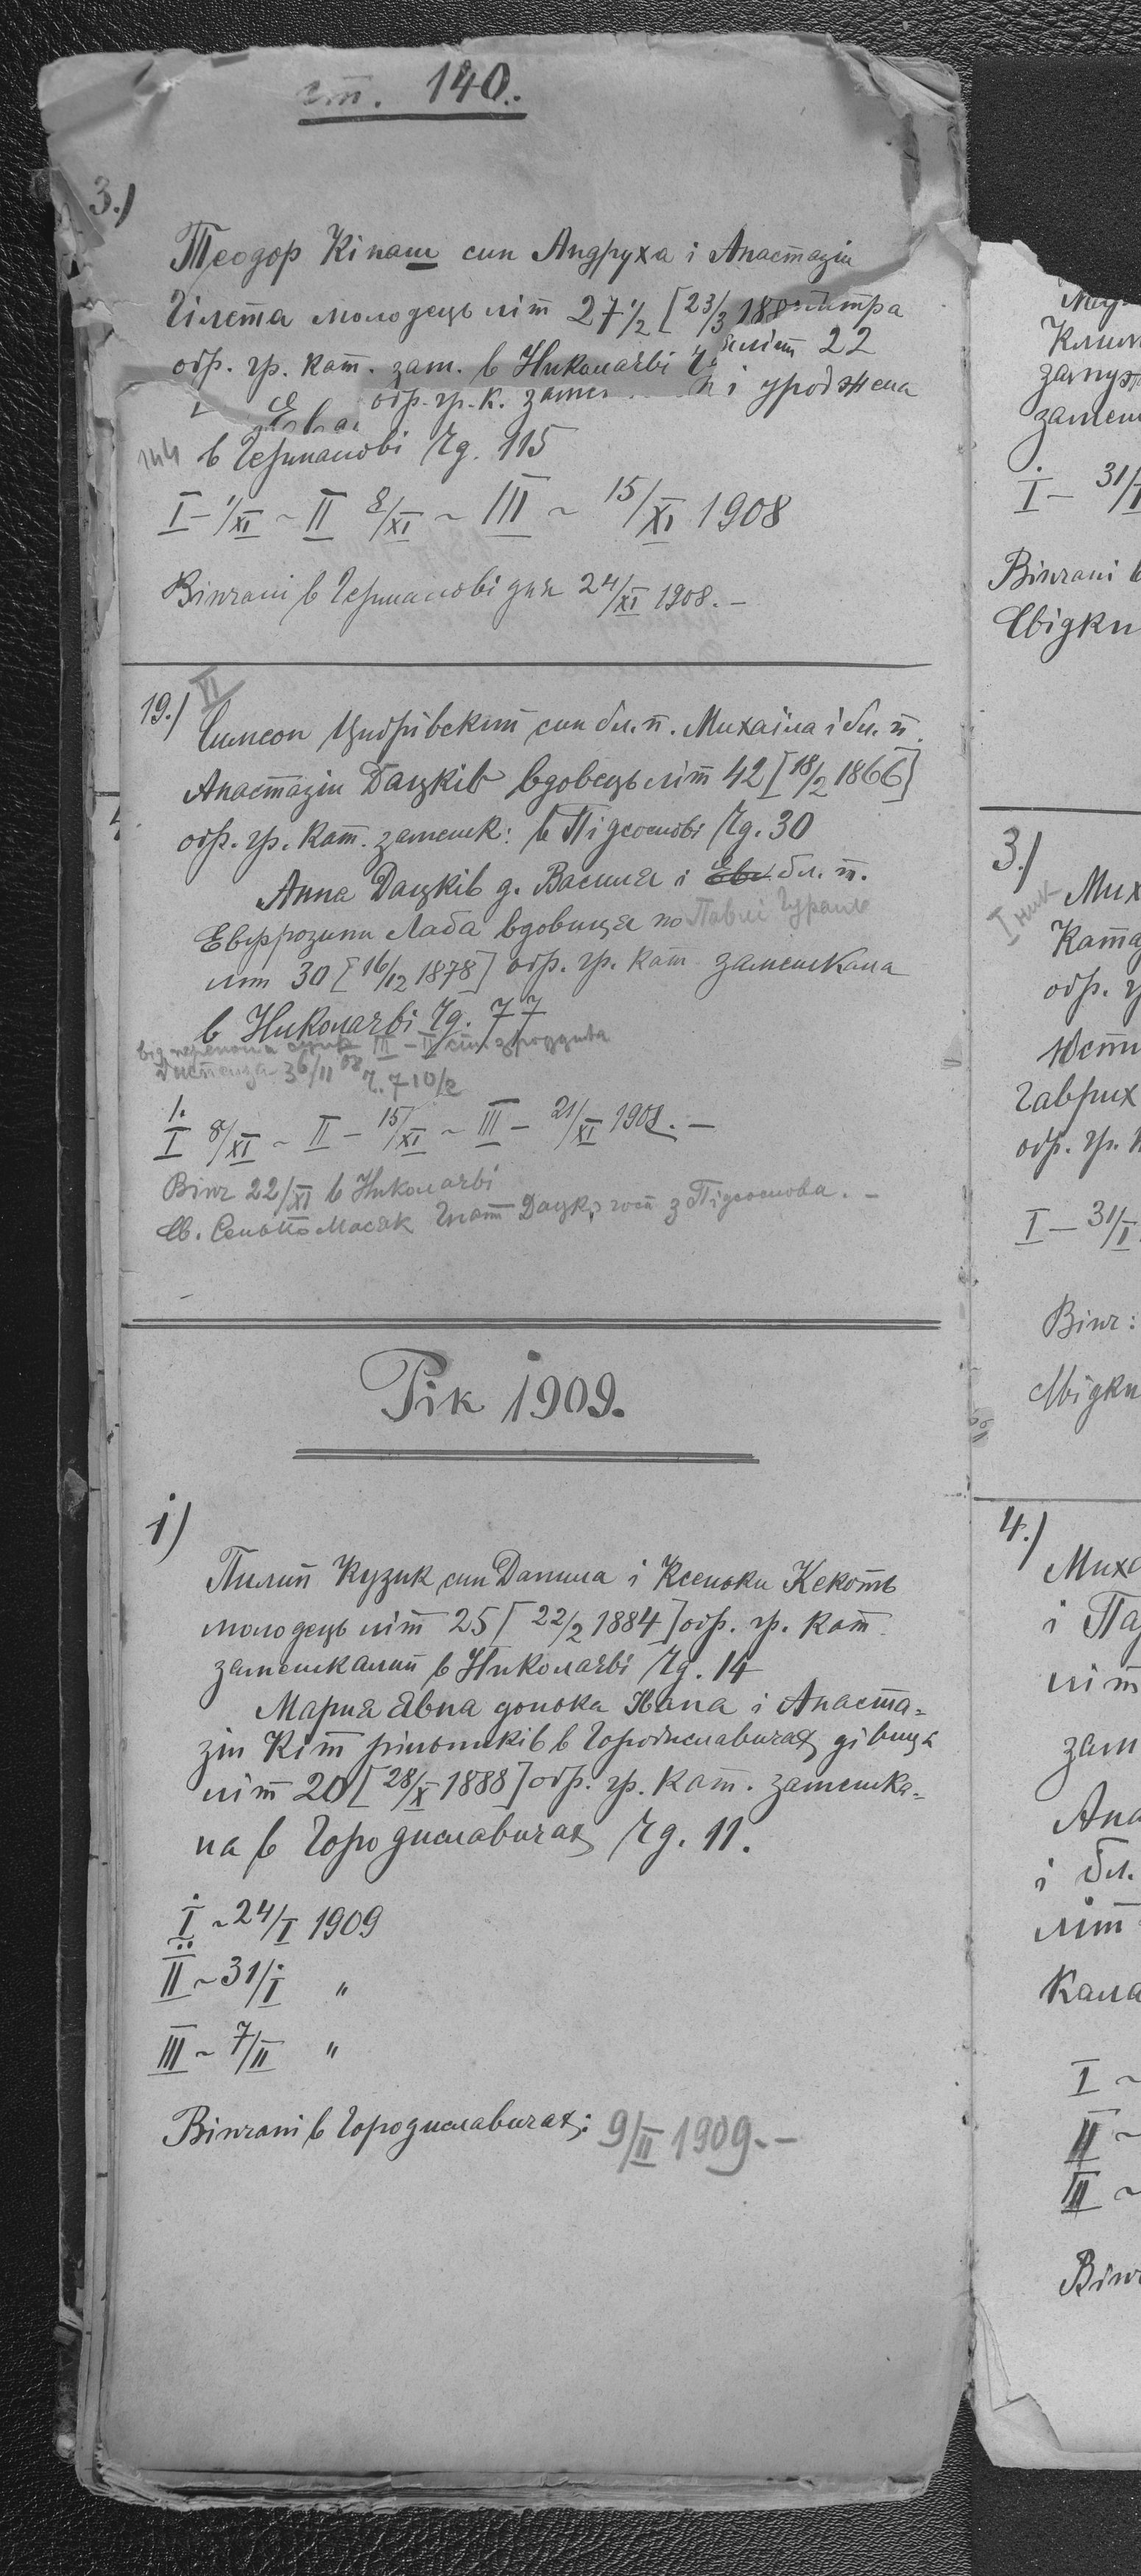 ст. 140.
3.)
Теодор Кіпаш син Андруха і Анастазіи
Гілета молодець літ 27 1/2 [23/3 188
обр. гр. кат. зам. в Николаєві
літ 22
обр. гр. к. замеш і уроджена
144 в Германові Чд. 115
I - 1/XI ~ II 8/XI ~ III ~ 15/XI 1908
Вінчані в Германові дня 24/XI 1908. -
19.) VI
Симеон Цибрівский син бл. п. Михаіла і бл. п.
Анастазіи Дацків вдовець літ 42 [18/2 1866]
обр. гр. кат. замешк: в Підсоснові Чд. 30
Анна Дацків д. Василя і Еви бл. п.
Евфрозини Лаба вдовиця по Павлі Гураль
літ 30 [16/12 1878] обр. гр. кат замешкана
в Николаєві Чд. 77
III - II
Диспенза 36/11 08 Ч. 710/2
1.
I 8/XI ~ II - 15/XI ~ III - 21/XI 1908. -
Вінч 22/XI в Николаєві
Св. Сенько Масяк Гнат Дацко госп з Підсоснова. -
Рік 1909.
1)
Пилип Кузик син Данила і Ксеньки Кекоть
молодець літ 25 [22/2 1884] обр. гр. кат.
замешкалий в Николаєві Чд. 14
Мария Явна донька Ивана і Анаста=
зіи Кіт рільників в Городиславичах дівиця
літ 20 [28/X 1888] обр. гр. кат. замешка=
на в Городиславичах Чд. 11.
I ~ 24/I 1909
II ~ 31/I "
III ~ 7/II "
Вінчані в Городиславичах: 9/II 1909. -
Клим
замеш
I - 31/I
Вінчані в
Свідки
3.)
Мих
обр. г
Юсти
Гаврих
обр. гр. к
I - 31/I
Вінч:
Свідки
4.)
Миха
і Па
літ
зам
Ана
і бл.
літ
кала
I ~
II ~
III ~
Вінч